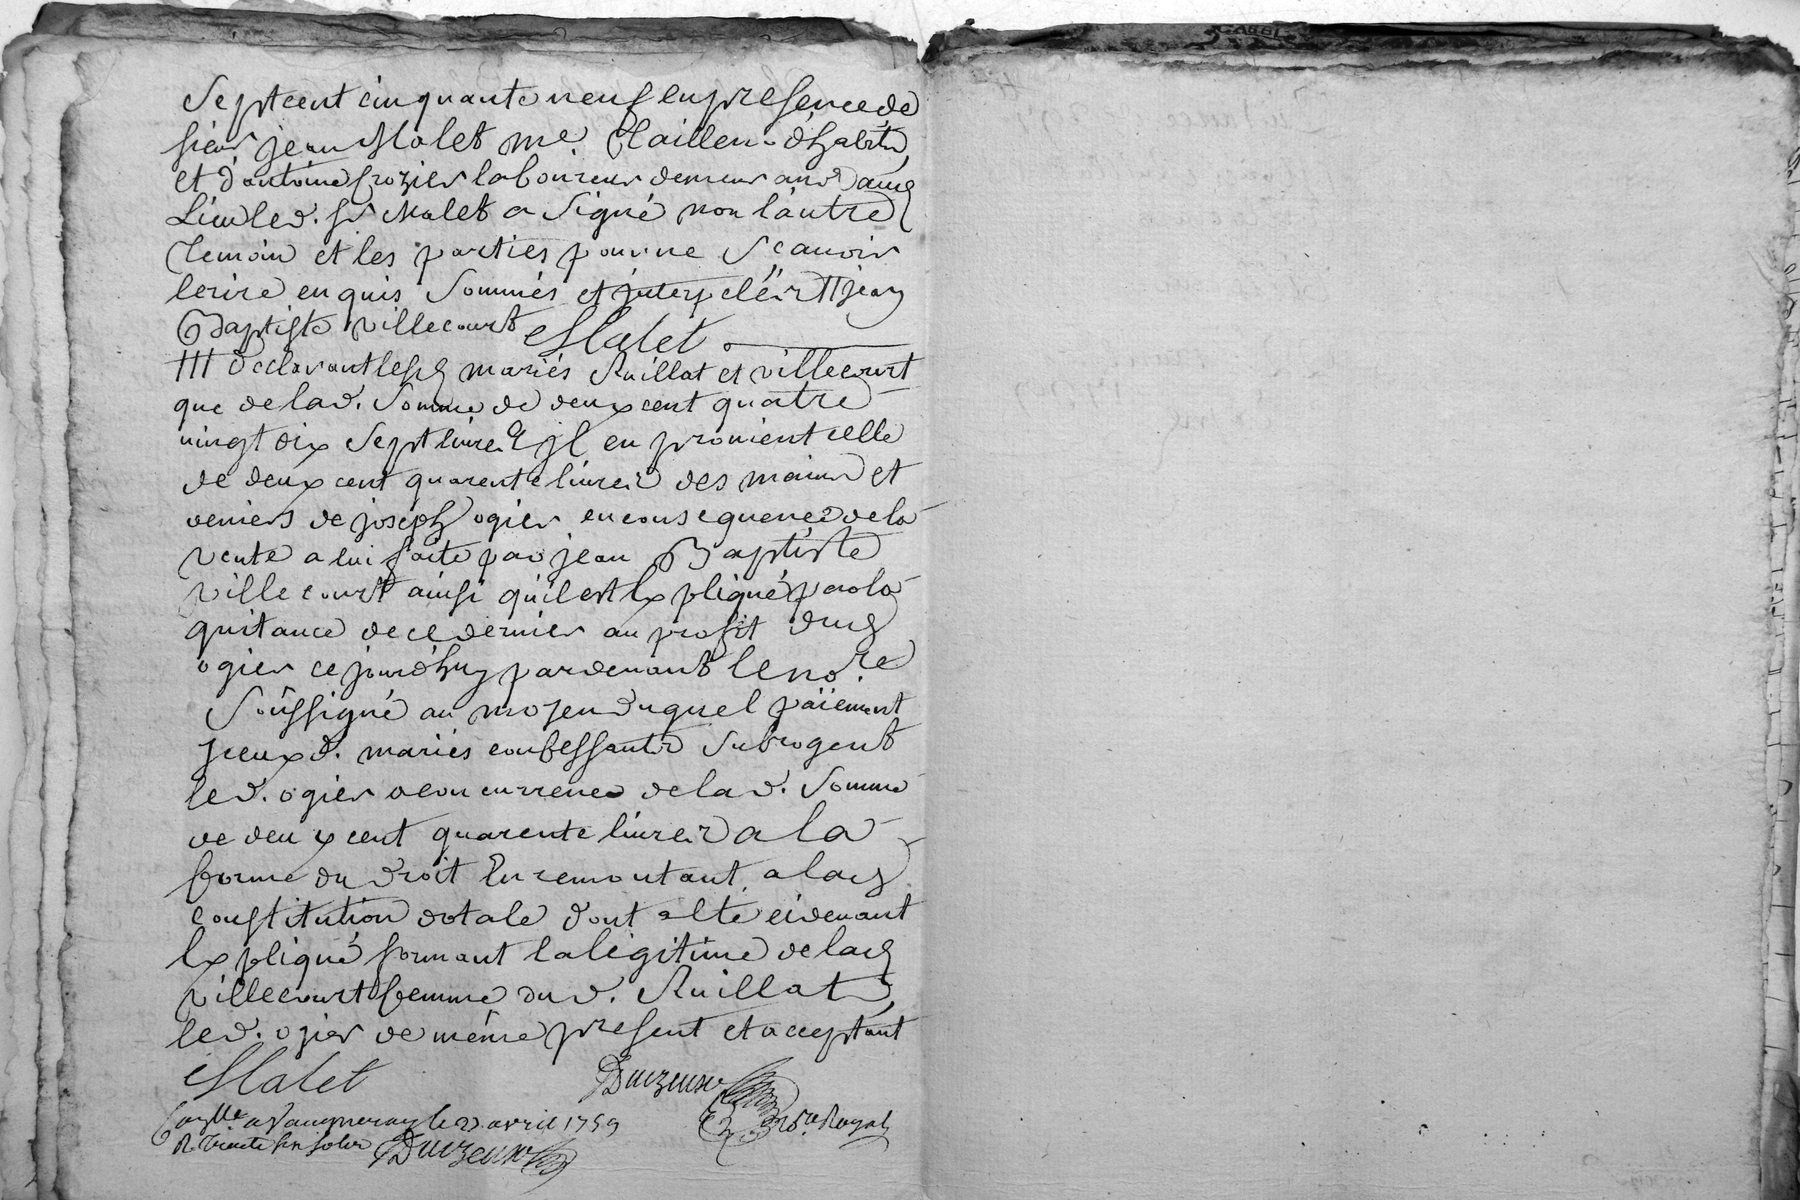 Septcent cinquante neuf en presence de
sieur jean Malet me. Tailleur d'habits
et d'antoine Crozier laboureur demeurant aud
Lieu led. sr Malet a Signé non l'autre
Temoin et les parties pour ne Sçauoir
ecrire enquis Sommés et jnterpelés jean
Baptiste villecourt Malet
declarant lesd mariés Ruillat et villecourt
que de lad. Somme de deux cent quatre
vingt dix Sept livres jl en prouient celle
de deux cent quarente livres des mains et
deniers de joseph ogier en consequence de la
vente a lui faite par jean Baptiste
villecourt ainsi qu'il est Expliqué par la
quitance de ce dernier au profit dud
ogier ce jourd'huy pardeuant le nore
Soussigné au moyen duquel païement
jceux d. mariés confessants Subrogent
led. ogier a concurrence de lad. Somme
de deux cent quarente livres a la
forme du droit En remontant a lad
constitution dotale dont acte cideuant
Expliqué formant la legitime de lad
villecourt femme dud. Ruillat,
led. ogier de même present et acceptant
Malet Duizeux nore Royal
Conlle. a Vaugneray le 2 avril 1759
R. Trente six sols Duizeux